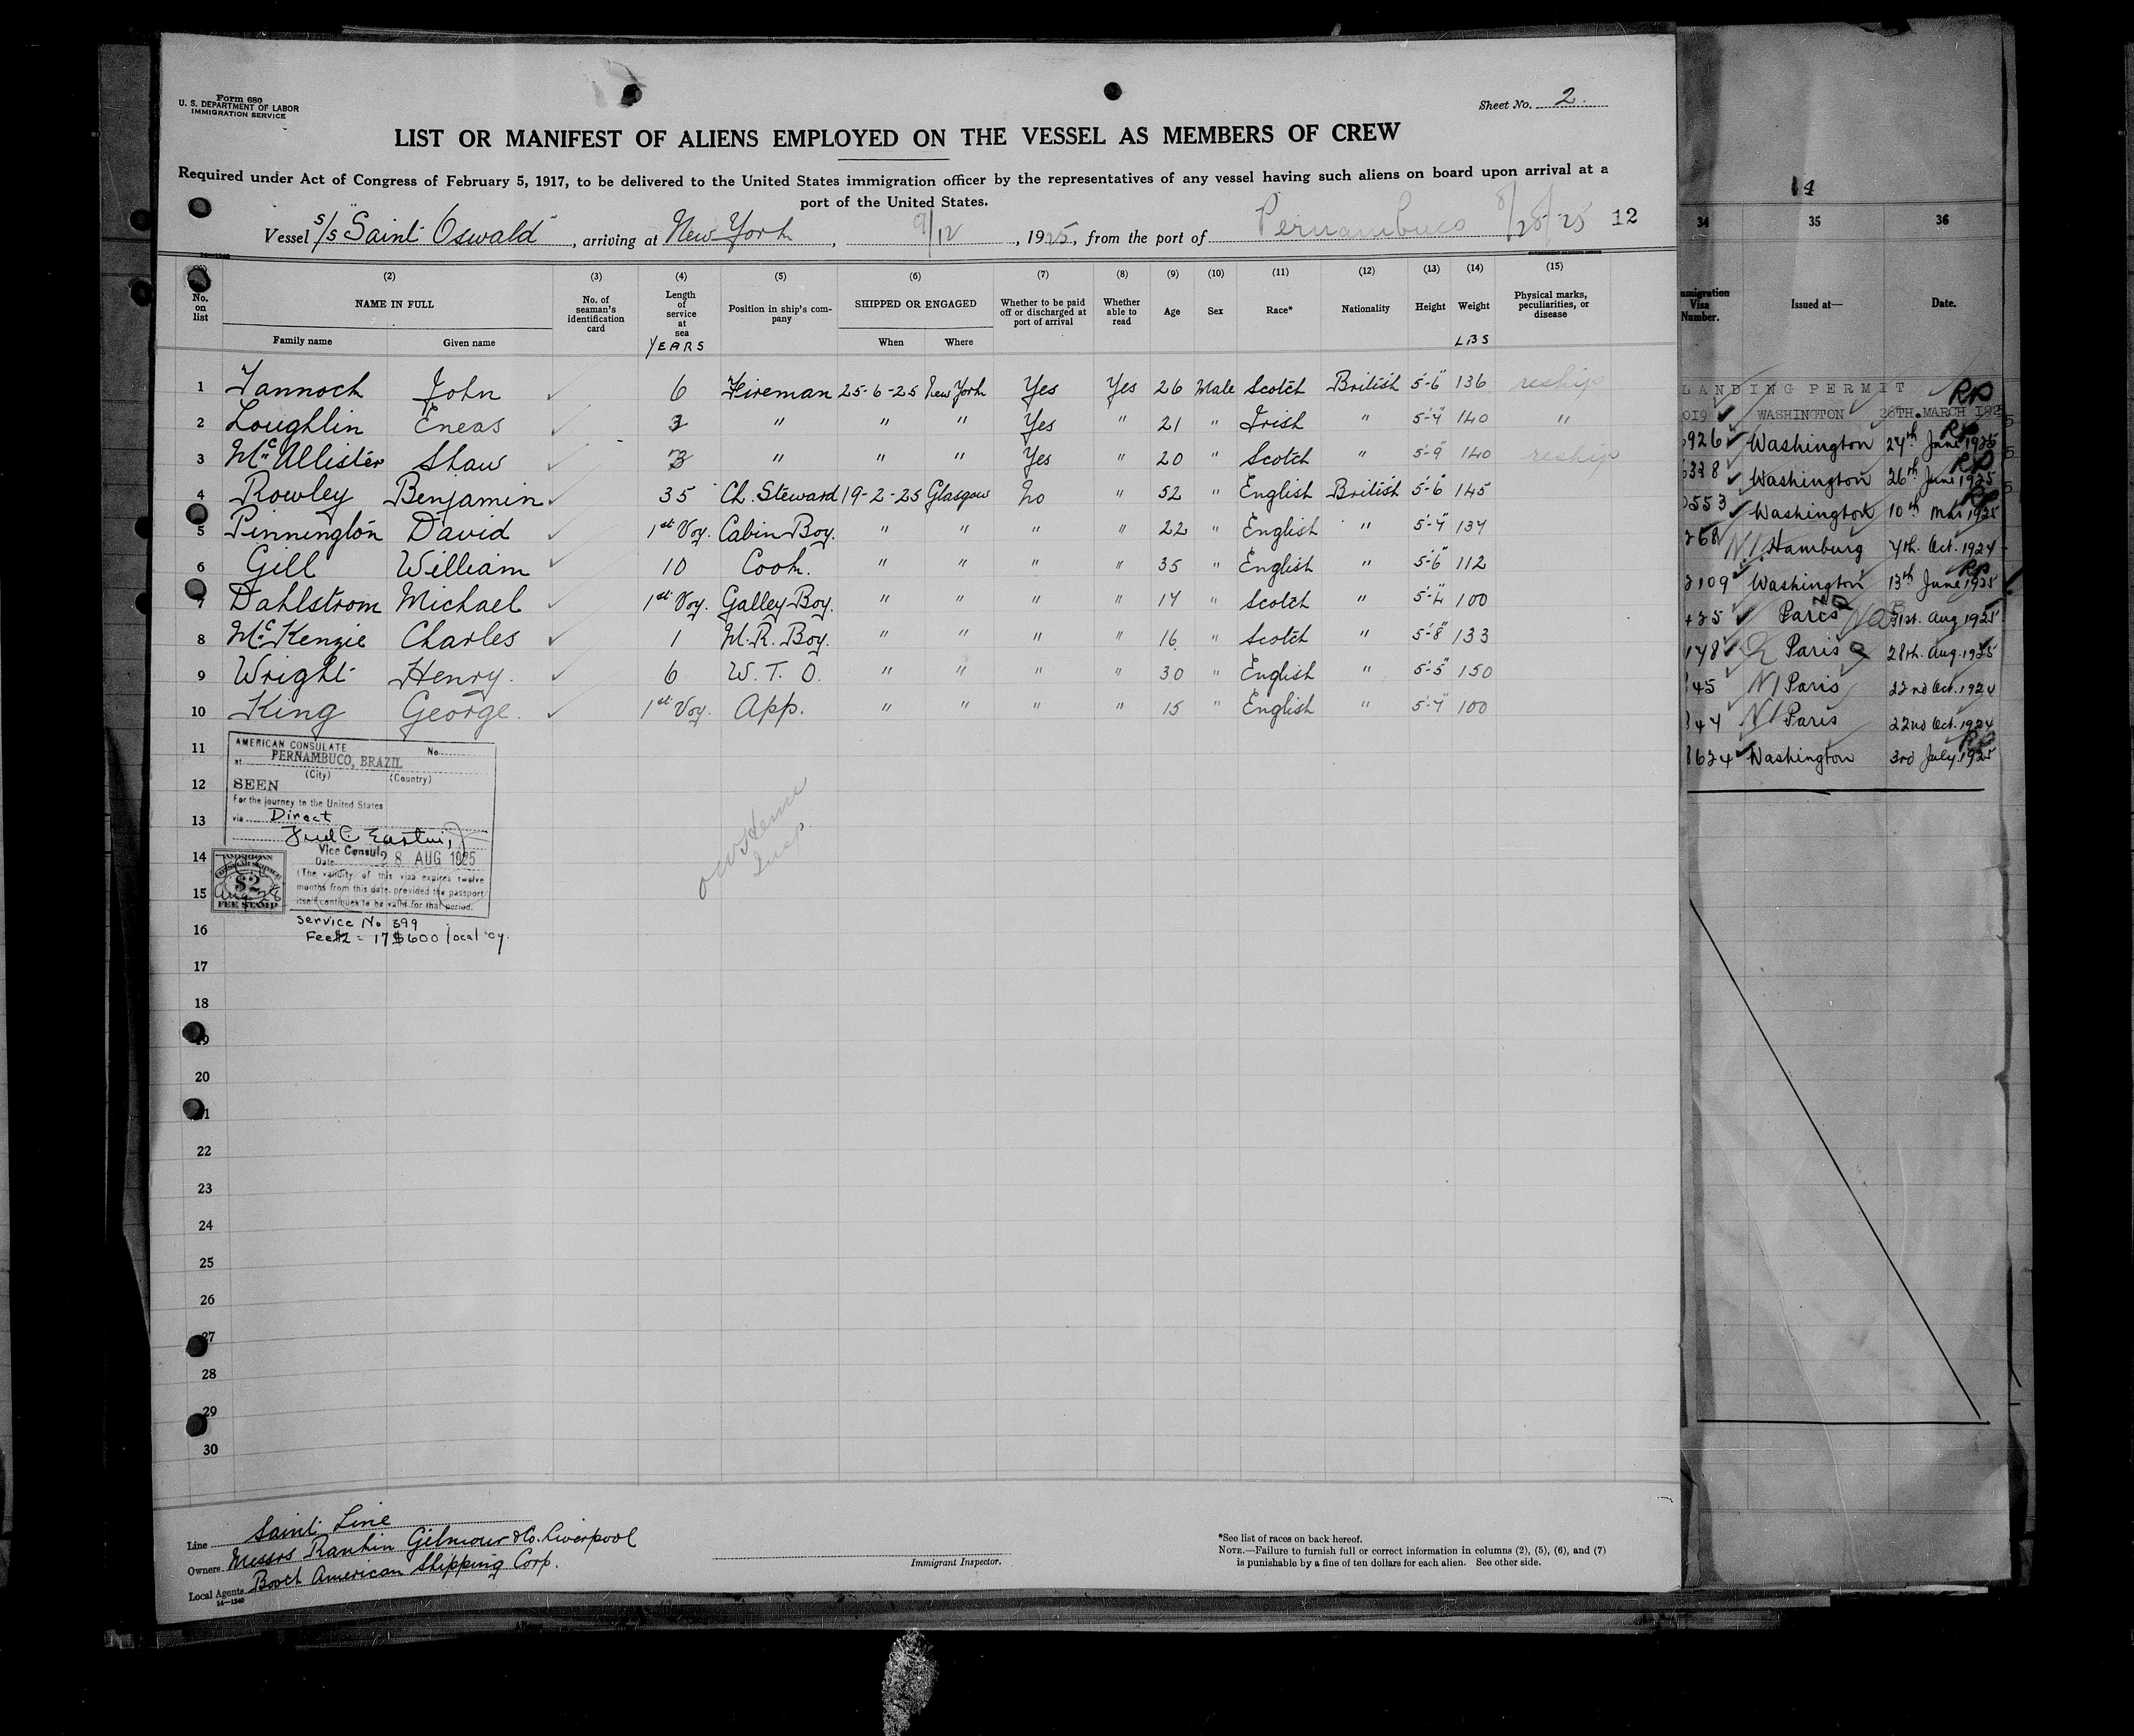 Form 680
U. S. DEPARTMENT OF LABOR
IMMIGRATION SERVICE
Sheet No. 2.
LIST OR MANIFEST OF ALIENS EMPLOYED ON THE VESSEL AS MEMBERS OF CREW
Required under Act of Congress of February 5, 1917, to be delivered to the United States immigration officer by the representatives of any vessel having such aliens on board upon arrival at a
port of the United States.
Vessel S/S "Saint Oswald", arriving at New York, 9/12, 1925, from the port of Pernambuco 8/28/25 12
(2) (3) (4) (5) (6) (7) (8) (9) (10) (11) (12) (13) (14) (15)
No. on list NAME IN FULL Family name Given name No. of seaman's identification card Length of service at sea YEARS Position in ship's company SHIPPED OR ENGAGED When Where Whether to be paid off or discharged at port of arrival Whether able to read Age Sex Race* Nationality Height Weight LBS Physical marks, peculiarities, or disease
1 Tannoch John ✓ 6 Fireman 25-6-25 New York Yes Yes 26 Male Scotch British 5'-6" 136 reship
2 Loughlin Eneas ✓ 3 " " " Yes " 21 " Irish " 5'-4" 140 "
3 McAllister Shaw ✓ 3 " " " Yes " 20 " Scotch " 5'-9" 140 reship
4 Rowley Benjamin ✓ 35 Ch. Steward 19-2-25 Glasgow No " 52 " English British 5'-6" 145
5 Pinnington David ✓ 1st Voy. Cabin Boy. " " " " 22 " English " 5'-4" 134
6 Gill William ✓ 10 Cook. " " " " 35 " English " 5'-6" 112
7 Dahlstrom Michael ✓ 1st Voy. Galley-Boy. " " " " 17 " Scotch " 5'-4" 100
8 McKenzie Charles ✓ 1 M.R. Boy. " " " " 16 " Scotch " 5'-8" 133
9 Wright Henry. ✓ 6 W. T. O. " " " " 30 " English " 5'-5" 150
10 King George. ✓ 1st Voy. App. " " " " 15 " English " 5'-4" 100
11
12
13
14
15
16
17
18
19
20
21
22
23
24
25
26
27
28
29
30
AMERICAN CONSULATE No.
at PERNAMBUCO, BRAZIL
(City) (Country)
SEEN
For the journey to the United States
via Direct
Vice Consul
Date 28 AUG 1925
(The validity of this visa expires twelve
months from this date, provided the passport
itself continues to be valid for that period.
AMERICAN
$2
FEE STAMP
Service No. 399
Fee $2 = 17$600 local cy.
Insp.
Line Saint Line
Owners Messrs Rankin Gilmour & Co. Liverpool
Local Agents Booth American Shipping Corp.
14—1240
Immigrant Inspector.
*See list of races on back hereof.
NOTE.—Failure to furnish full or correct information in columns (2), (5), (6), and (7)
is punishable by a fine of ten dollars for each alien. See other side.
14
34 35 36
Visa Number. Issued at— Date.
LANDING PERMIT
019 ✓ WASHINGTON 26TH. MARCH 192
926 ✓ Washington 24th June 1925
338 ✓ Washington 26th June 1925
553 ✓ Washington 10th Mar 1925
268 N/ Hamburg 4th. Oct. 1924
109 ✓ Washington 13th June 1925
425 ✓ Paris 31st. Aug 1925
148 ✓ Paris 28th. Aug. 1925
45 N/ Paris 22nd Oct. 1924
47 N/ Paris 22nd Oct. 1924
8624 ✓ Washington 3rd July 1925